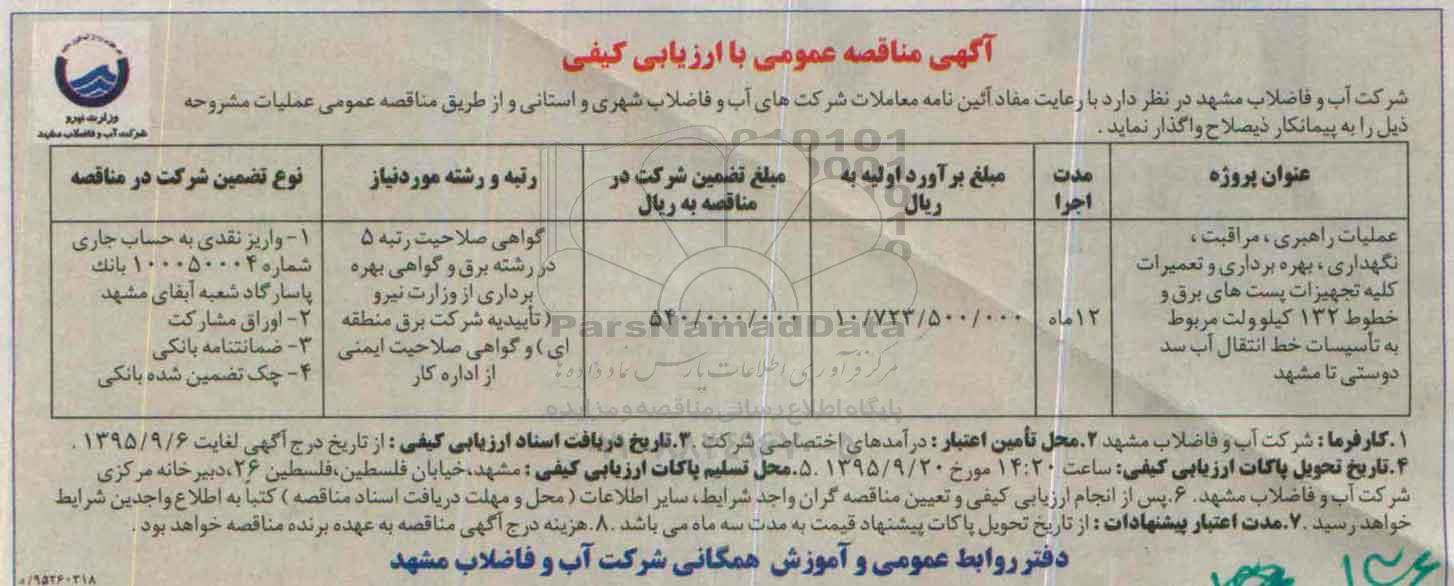 آگهی مناقصه عمومی با ارزیابی کیفی
وزارت نیرو
شرکت آب و فاضلاب مشهد
شرکت آب و فاضلاب مشهد در نظر دارد با رعایت مفاد آئین نامه معاملات شرکت های آب و فاضلاب شهری و استانی و از طریق مناقصه عمومی عملیات مشروحه
ذیل را به پیمانکار ذیصلاح واگذار نماید .
عنوان پروژه
مدت
اجرا
مبلغ برآورد اولیه به
ریال
مبلغ تضمین شرکت در
مناقصه به ریال
رتبه و رشته موردنیاز
نوع تضمین شرکت در مناقصه
عملیات راهبری ، مراقبت ،
نگهداری ، بهره برداری و تعمیرات
کلیه تجهیزات پست های برق و
خطوط ۱۳۲ کیلو ولت مربوط
به تأسیسات خط انتقال آب سد
دوستی تا مشهد
۱۲ ماه
۱۰/۷۲۳/۵۰۰/۰۰۰
۵۴۰/۰۰۰/۰۰۰
گواهی صلاحیت رتبه ۵
در رشته برق و گواهی بهره
برداری از وزارت نیرو
( تأییدیه شرکت برق منطقه
ای ) و گواهی صلاحیت ایمنی
از اداره کار
۱- واریز نقدی به حساب جاری
شماره ۱۰۰۰۵۰۰۰۴ بانك
پاسارگاد شعبه آبفای مشهد
۲- اوراق مشارکت
۳- ضمانتنامه بانکی
۴- چک تضمین شده بانکی
ParsNamadData
مرکز فرآوری اطلاعات پارس نماد داده ها
پایگاه اطلاع رسانی مناقصه و مزایده
۱.کارفرما : شرکت آب و فاضلاب مشهد ۲.محل تأمین اعتبار : درآمدهای اختصاصی شرکت .۳.تاریخ دریافت اسناد ارزیابی کیفی : از تاریخ درج آگهی لغایت ۱۳۹۵/۹/۶ .
۴.تاریخ تحویل پاکات ارزیابی کیفی: ساعت ۱۴:۲۰ مورخ ۱۳۹۵/۹/۲۰ .۵.محل تسلیم پاکات ارزیابی کیفی : مشهد،خیابان فلسطین،فلسطین ۲۶،دبیرخانه مرکزی
شرکت آب و فاضلاب مشهد. ۶.پس از انجام ارزیابی کیفی و تعیین مناقصه گران واجد شرایط، سایر اطلاعات ( محل و مهلت دریافت اسناد مناقصه ) کتباً به اطلاع واجدین شرایط
خواهد رسید .۷.مدت اعتبار پیشنهادات : از تاریخ تحویل پاکات پیشنهاد قیمت به مدت سه ماه می باشد .۸.هزینه درج آگهی مناقصه به عهده برنده مناقصه خواهد بود .
دفتر روابط عمومی و آموزش همگانی شرکت آب و فاضلاب مشهد